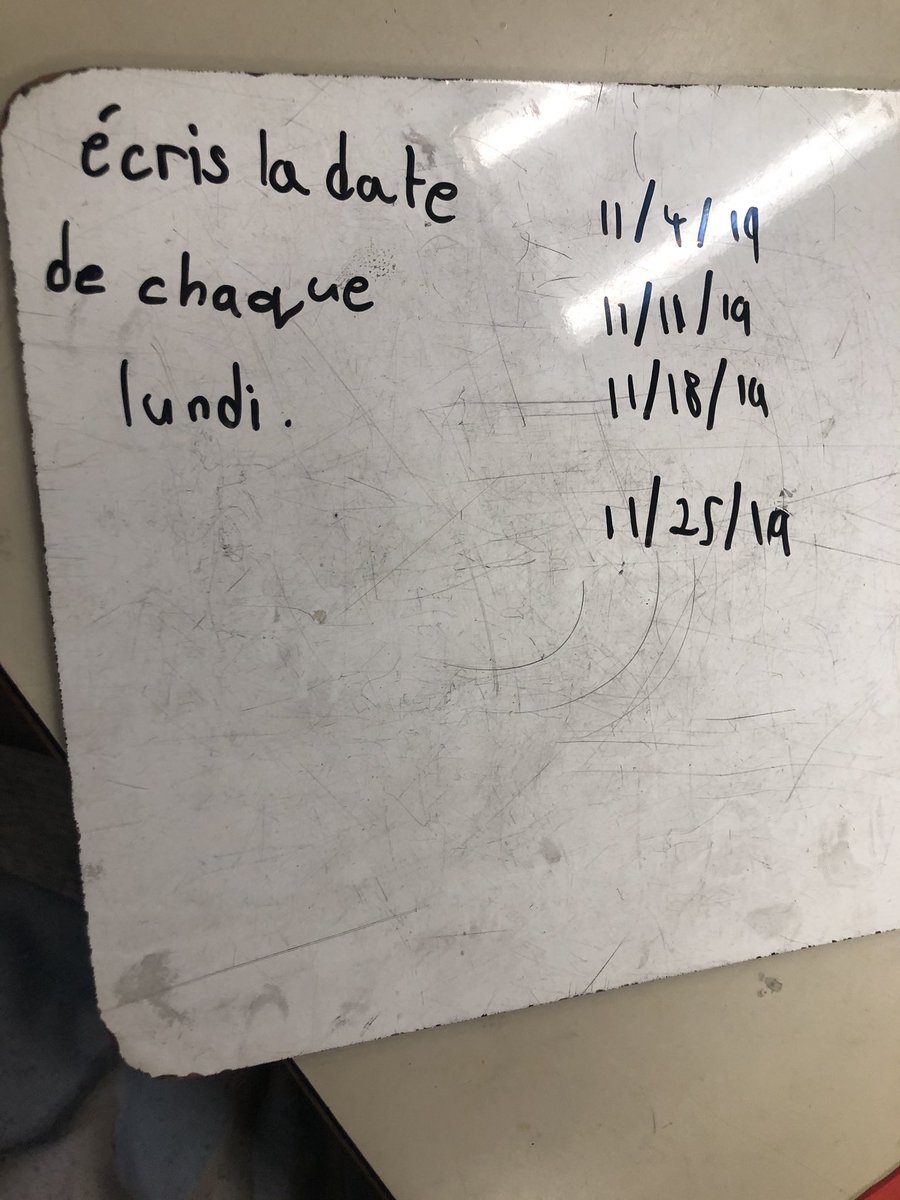 écris la date
de chaque
lundi.
11/4/19
11/11/19
11/18/19
11/25/19